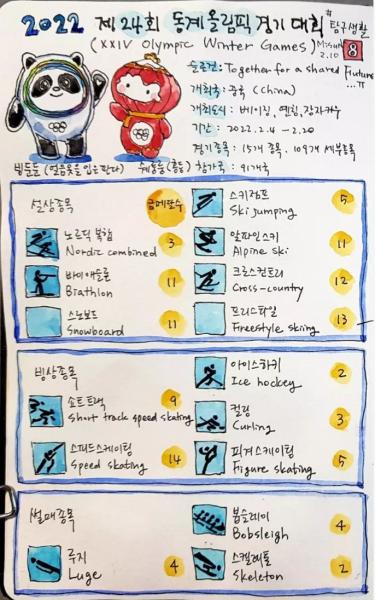 2022 제24회 동계올림픽 경기 대회
#탐구생활
(XXIV Olympic Winter Games)
2.10
8
슬로건: Together for a shared Future
개최국: 중국 (China)
개최도시: 베이징, 옌칭, 장자커우
기간: 2022.2.4 ~ 2.20
경기종목: 15개 종목, 109개 세부종목
참가국: 91개국
빙둔둔 (얼음옷을 입은 판다)
설상종목
금메달수
노르딕 복합 3
Nordic combined
바이애슬론
Biathlon 11
스노보드
Snowboard 11
스키점프 5
Ski jumping
알파인스키 11
Alpine Ski
크로스컨트리 12
Cross-country
프리스타일 13
Freestyle skiing
빙상종목
쇼트트랙 9
Short track speed skating
스피드스케이팅
Speed skating 14
아이스하키 2
Ice hockey
컬링 3
Curling
피겨스케이팅 5
Figure skating
썰매종목
루지
Luge 4
봅슬레이 4
Bobsleigh
스켈레톤
Skeleton 2